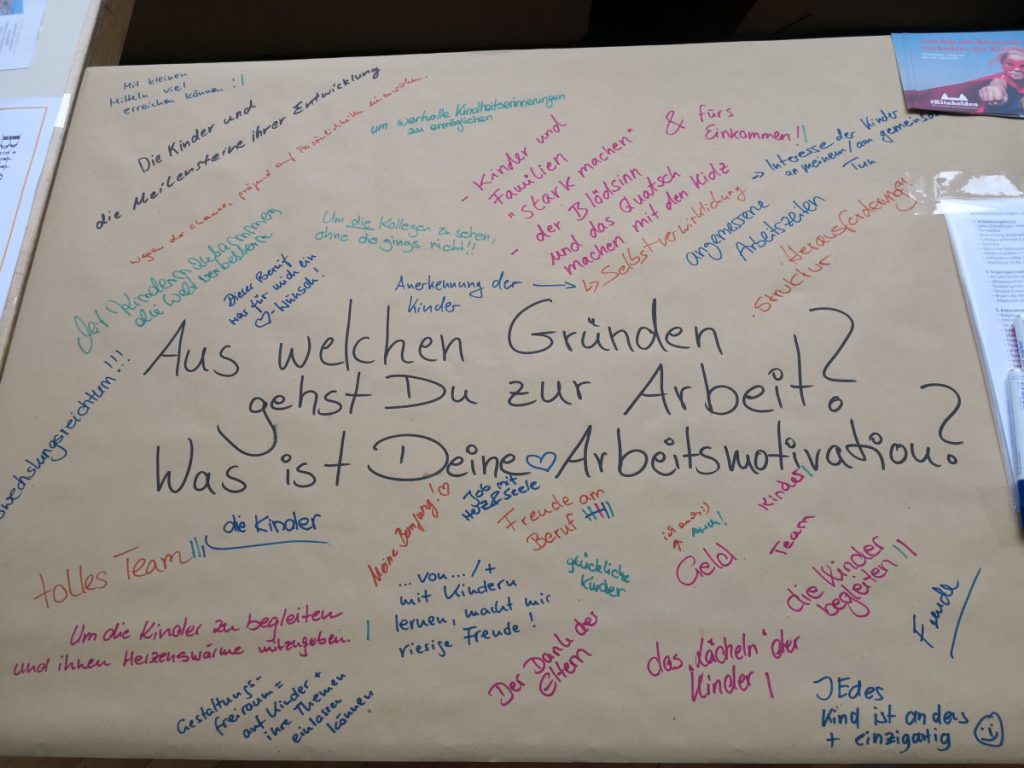 Mit kleinen
Mitteln viel
erreichen können!!
Die Kinder und
die Meilensteine ihrer Entwicklung
wegen der chance, prägend auf Persönlichkeiten einzuwirken.
um wertvolle Kindheitserinnerungen
zu ermöglichen
- Kinder und
Familien
"stark machen"
- der Blödsinn
und das Quatsch
machen mit den Kidz
& fürs
Einkommen!!
→ Interesse der Kinder
an meinem/am gemeinsa
Tun
die Welt verbessern
Um die Kollegen zu sehen,
ohne die gings nicht!!
Dieser Beruf
war für mich ein
♡-Wunsch!
Anerkennung der
Kinder
→ Selbstverwirklichung
angemessene
Arbeitszeiten
Herausforderung
Struktur
Aus welchen Gründen
gehst Du zur Arbeit?
Was ist Deine ♡ Arbeitsmotivation?
wechslungsreichtum!!!
die Kinder
tolles Team
Meine Berufung!♡
Job mit
Herz & Seele
Freude am
Beruf
ist auch :)
Auch!
Geld
Kinder
Team
die Kinder
begleiten
Freude
glückliche
Kinder
... von ... /+
mit Kindern
lernen, macht mir
riesige Freude!
Um die Kinder zu begleiten
und ihnen Herzenswärme mitzugeben.
Gestaltungs-
freiraum =
auf Kinder +
ihre Themen
einlassen
können
Der Dank der
Eltern
das "Lächeln" der
Kinder
JEdes
Kind ist anders
+ einzigartig
#Kitahelden